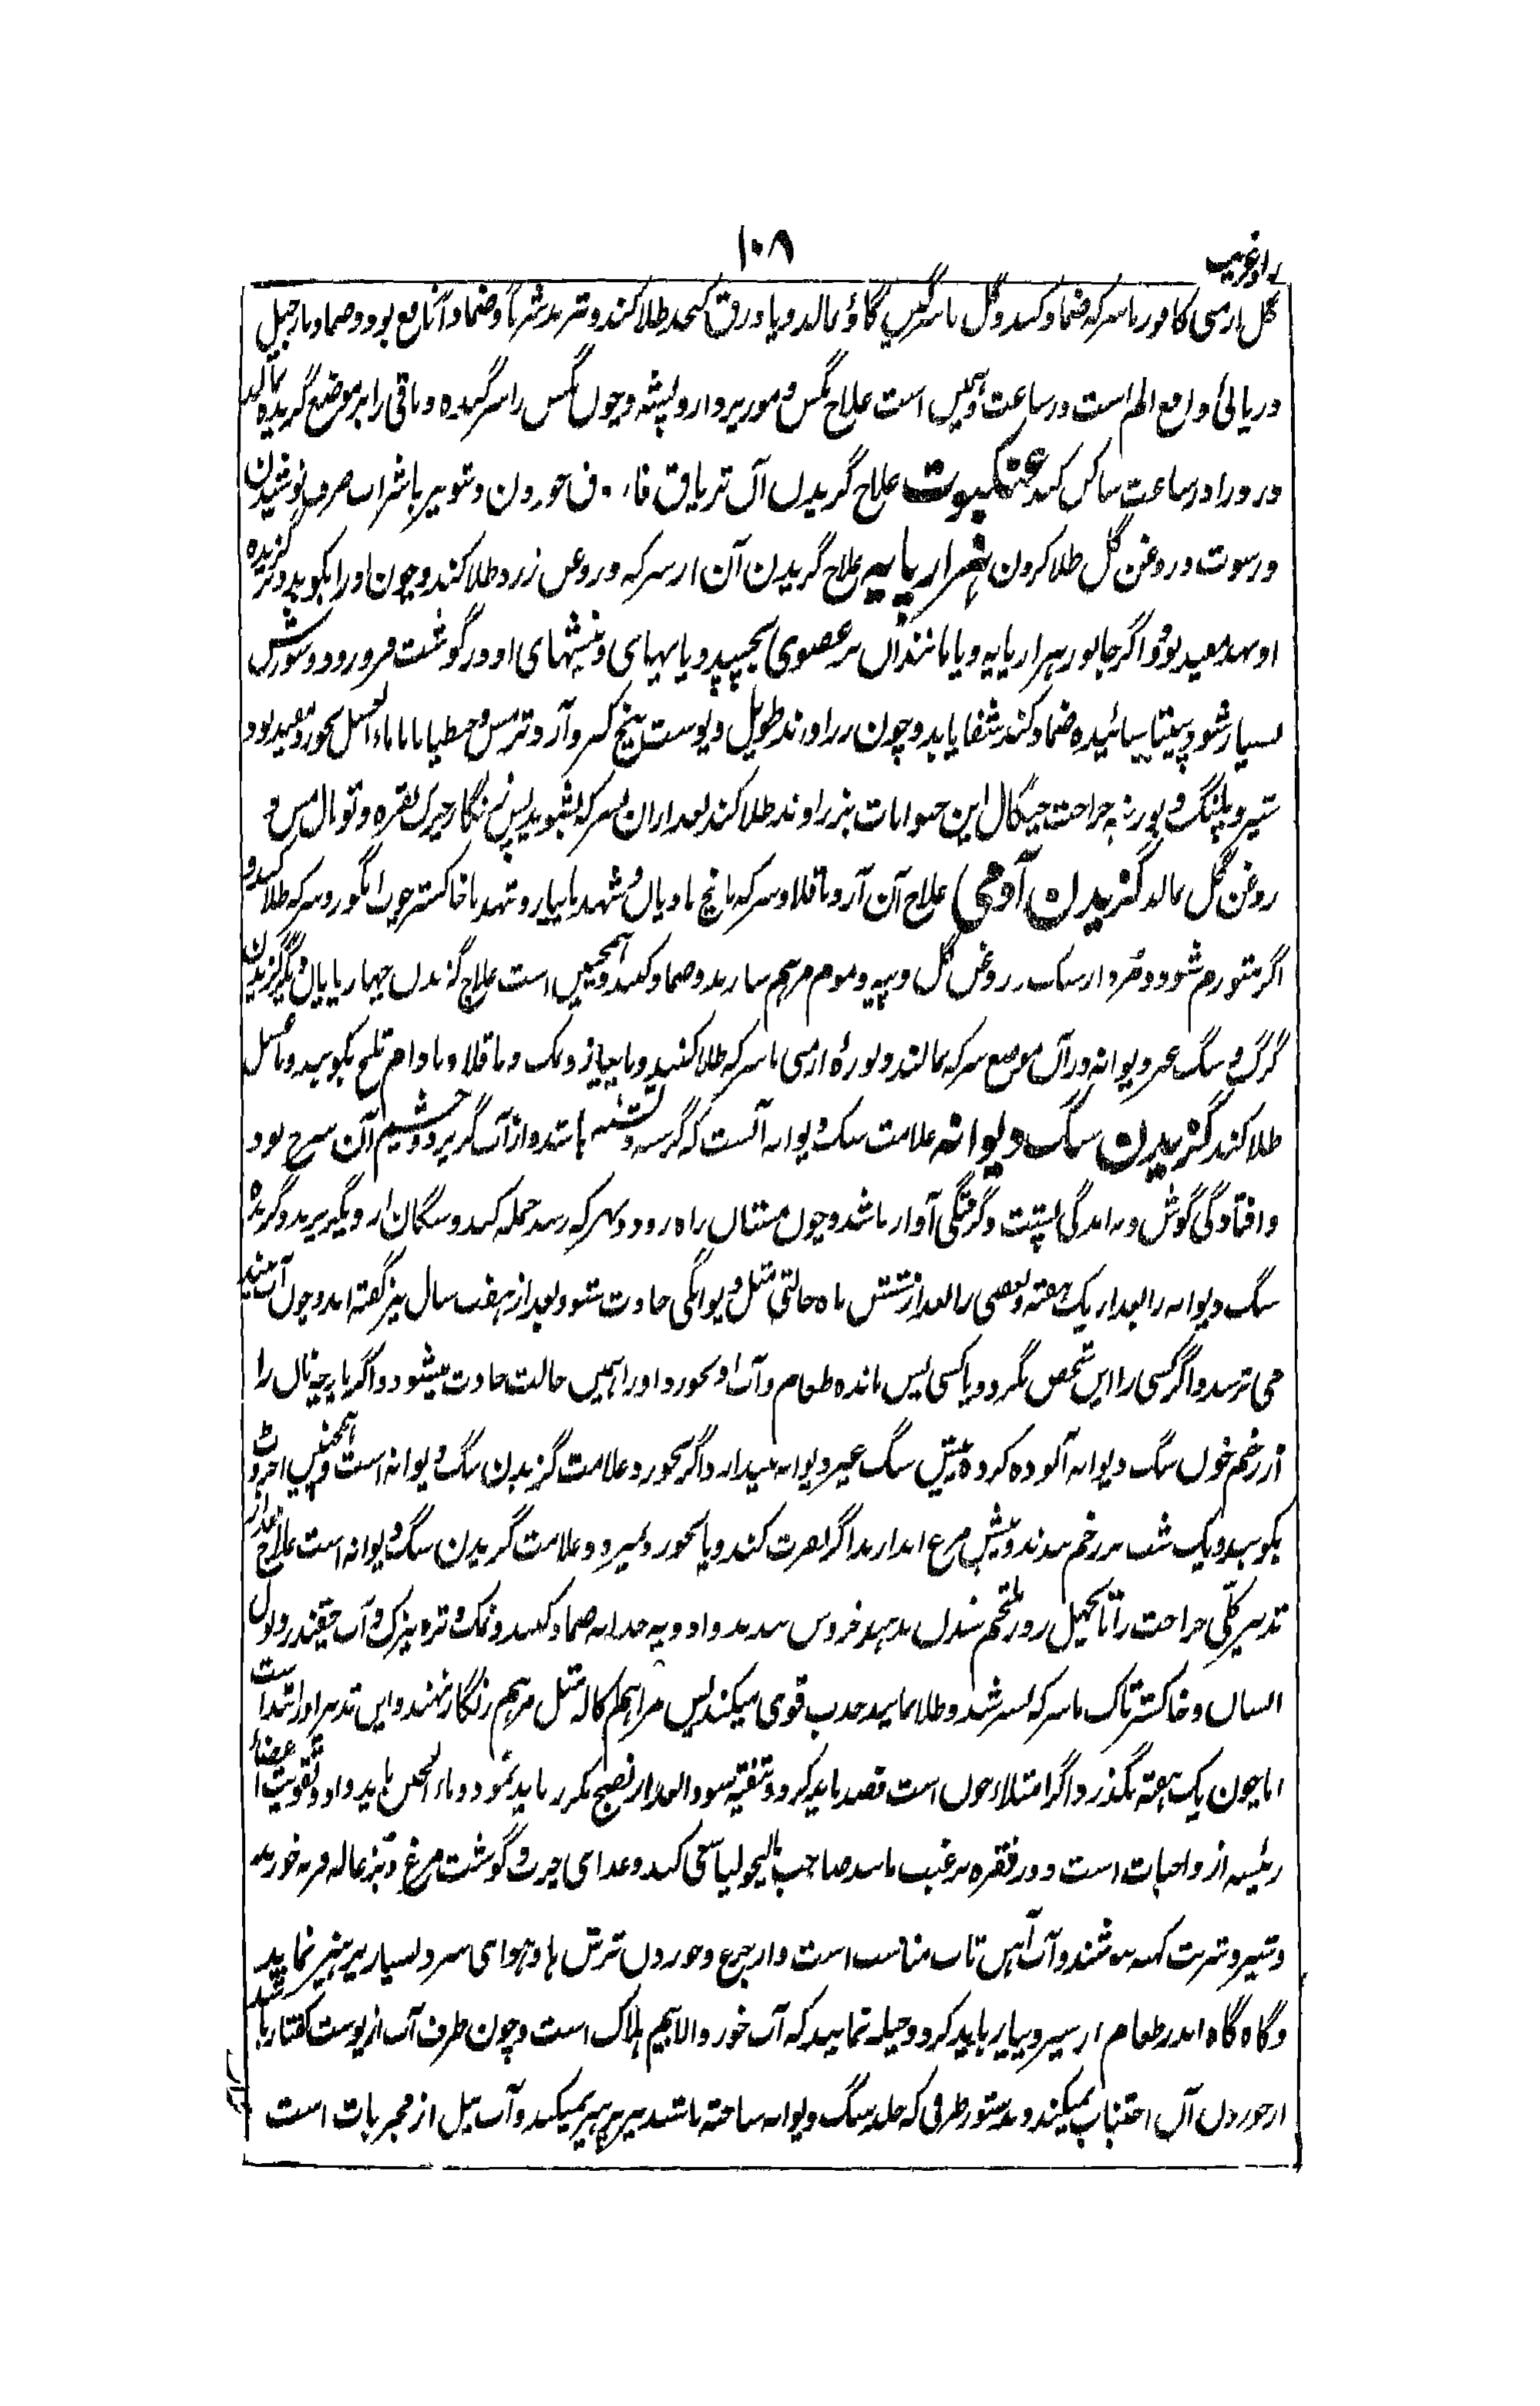 ۱۰۸
گل ارمنی کافور باسرکه ضماد کنند و گل باسرگین گاؤ مالند و یا ورق کنجد طلا کنند و تربد شرباً و ضماداً نافع بود و ضماد نارجیل
دریائی دافع الم است در ساعت و همچنین است علاج مگس و مور پردار و پشه و چون مگس را سر کنده و باقی را بر موضع گزیده بمالند
درد را در ساعت ساکن کند عنکبوت علاج گزیدن آن تریاق خوردن و شونیز باشراب صرف نوشیدن
و رسوت و روغن گل طلا کردن هزارپایه علاج گزیدن آن از سرکه و روغن زرد طلا کنند و چون او را بکوبند و بر گزیده
او نهند مفید بود و اگر جانور هزارپایه و یا مانند آن بر عضوی بچسپد و پایهای و نیشهای او در گوشت فرو رود و سوزش
بسیار شود پیتا سائیده ضماد کنند شفا یابد و چون زراوند طویل و پوست بیخ کبر و آرد ترمس و جنطیانا باماءالعسل بخورد مفید بود
شیر و پلنگ و یوزنه جراحت چنگال این حیوانات بزراوند طلا کنند بعد ازان بسرکه بشویند پس زنگار چرک نقره و توبال مس و
روغن گل مالند گزیدن آدمی علاج آن آرد باقلا و سرکه یا بیخ بادیان و شهد یا پیاز و شهد یا خاکستر چوب انگور و سرکه طلا کنند و
اگر متورم شود و مرداسنگ روغن گل و پیه و موم مرهم سازند و ضماد کنند و همچنین است علاج گزیدن چهارپایان دیگر گزیدن
گرگ و سگ غیر دیوانه در آن موضع سرکه بمالند و بورهٔ ارمنی باسرکه طلا کنند و یا پیاز و نمک و باقلا و بادام تلخ بکوبند و باعسل
طلا کنند گزیدن سگ دیوانه علامت سگ دیوانه آنست که گرسنه و تشنه باشد و از آب گریزد و چشم آن سرخ بود
و افتادگی گوش و برآمدگی پشت و گرفتگی آواز باشد و چون مستان براه رود و بهر که رسد حمله کند و سگان از و بگریزند و گزیده
سگ دیوانه را بعد از یک هفته و بعضی را بعد از شش ماه حالتی مثل دیوانگی حادث شود و بعد از هفت سال نیز گفته اند و چون آب بیند
می ترسد و اگر کسی را این شخص بگزد و یا کسی پس مانده طعام و آب او بخورد او را همین حالت حادث میشود و اگر پارچه نان را
از زخم خون سگ دیوانه آلوده کرده پیش سگ غیر دیوانه بیندازند اگر نخورد علامت گزیدن سگ دیوانه است و همچنین اخروٹ
بکوبند و یک شب بر زخم بندند و پیش مرغ اندازند اگر نفرت کند و یا بخورد و بمیرد علامت گزیدن سگ دیوانه است علاج بعد از
تدبیر کلی جراحت را تا چهل روز ملتحم شدن ندهند و ادویه جذابه ضماد کنند و نمک و تره تیزک و آب چقندر و بول
انسان و خاکستر تاک باسرکه بسرشند و طلا نمایند جذب قوی میکند پس مراهم اکاله مثل مرهم زنگار نهند و این تدبیر در ابتداست
اما چون یک هفته بگذرد اگر امتلاء خون است فصد باید کرد و تنقیه سودا بعد از نضج مکرر باید نمود و ماءالجبن باید داد و تقویت اعضاء
رئیسه از واجبات است و غذای چرب و گوشت مرغ و بزغاله فربه خورند
و شیر و شربت کهنه نوشند و آب آهن تاب مناسب است و از جوع و خوردن ترشی ها و هوای سرد بسیار پرهیز نمایند
و گاه گاه اندر طعام از سیر و پیاز باید کرد و حیله نمایند که آب خورد والا بیم هلاک است و چون ظرف آب از پوست کفتار باشد
از خوردن آن اجتناب نمیکند و بدستور ظرفی که جلد سگ دیوانه ساخته باشند نیز پرهیز نمیکند و آب نیل از مجربات است